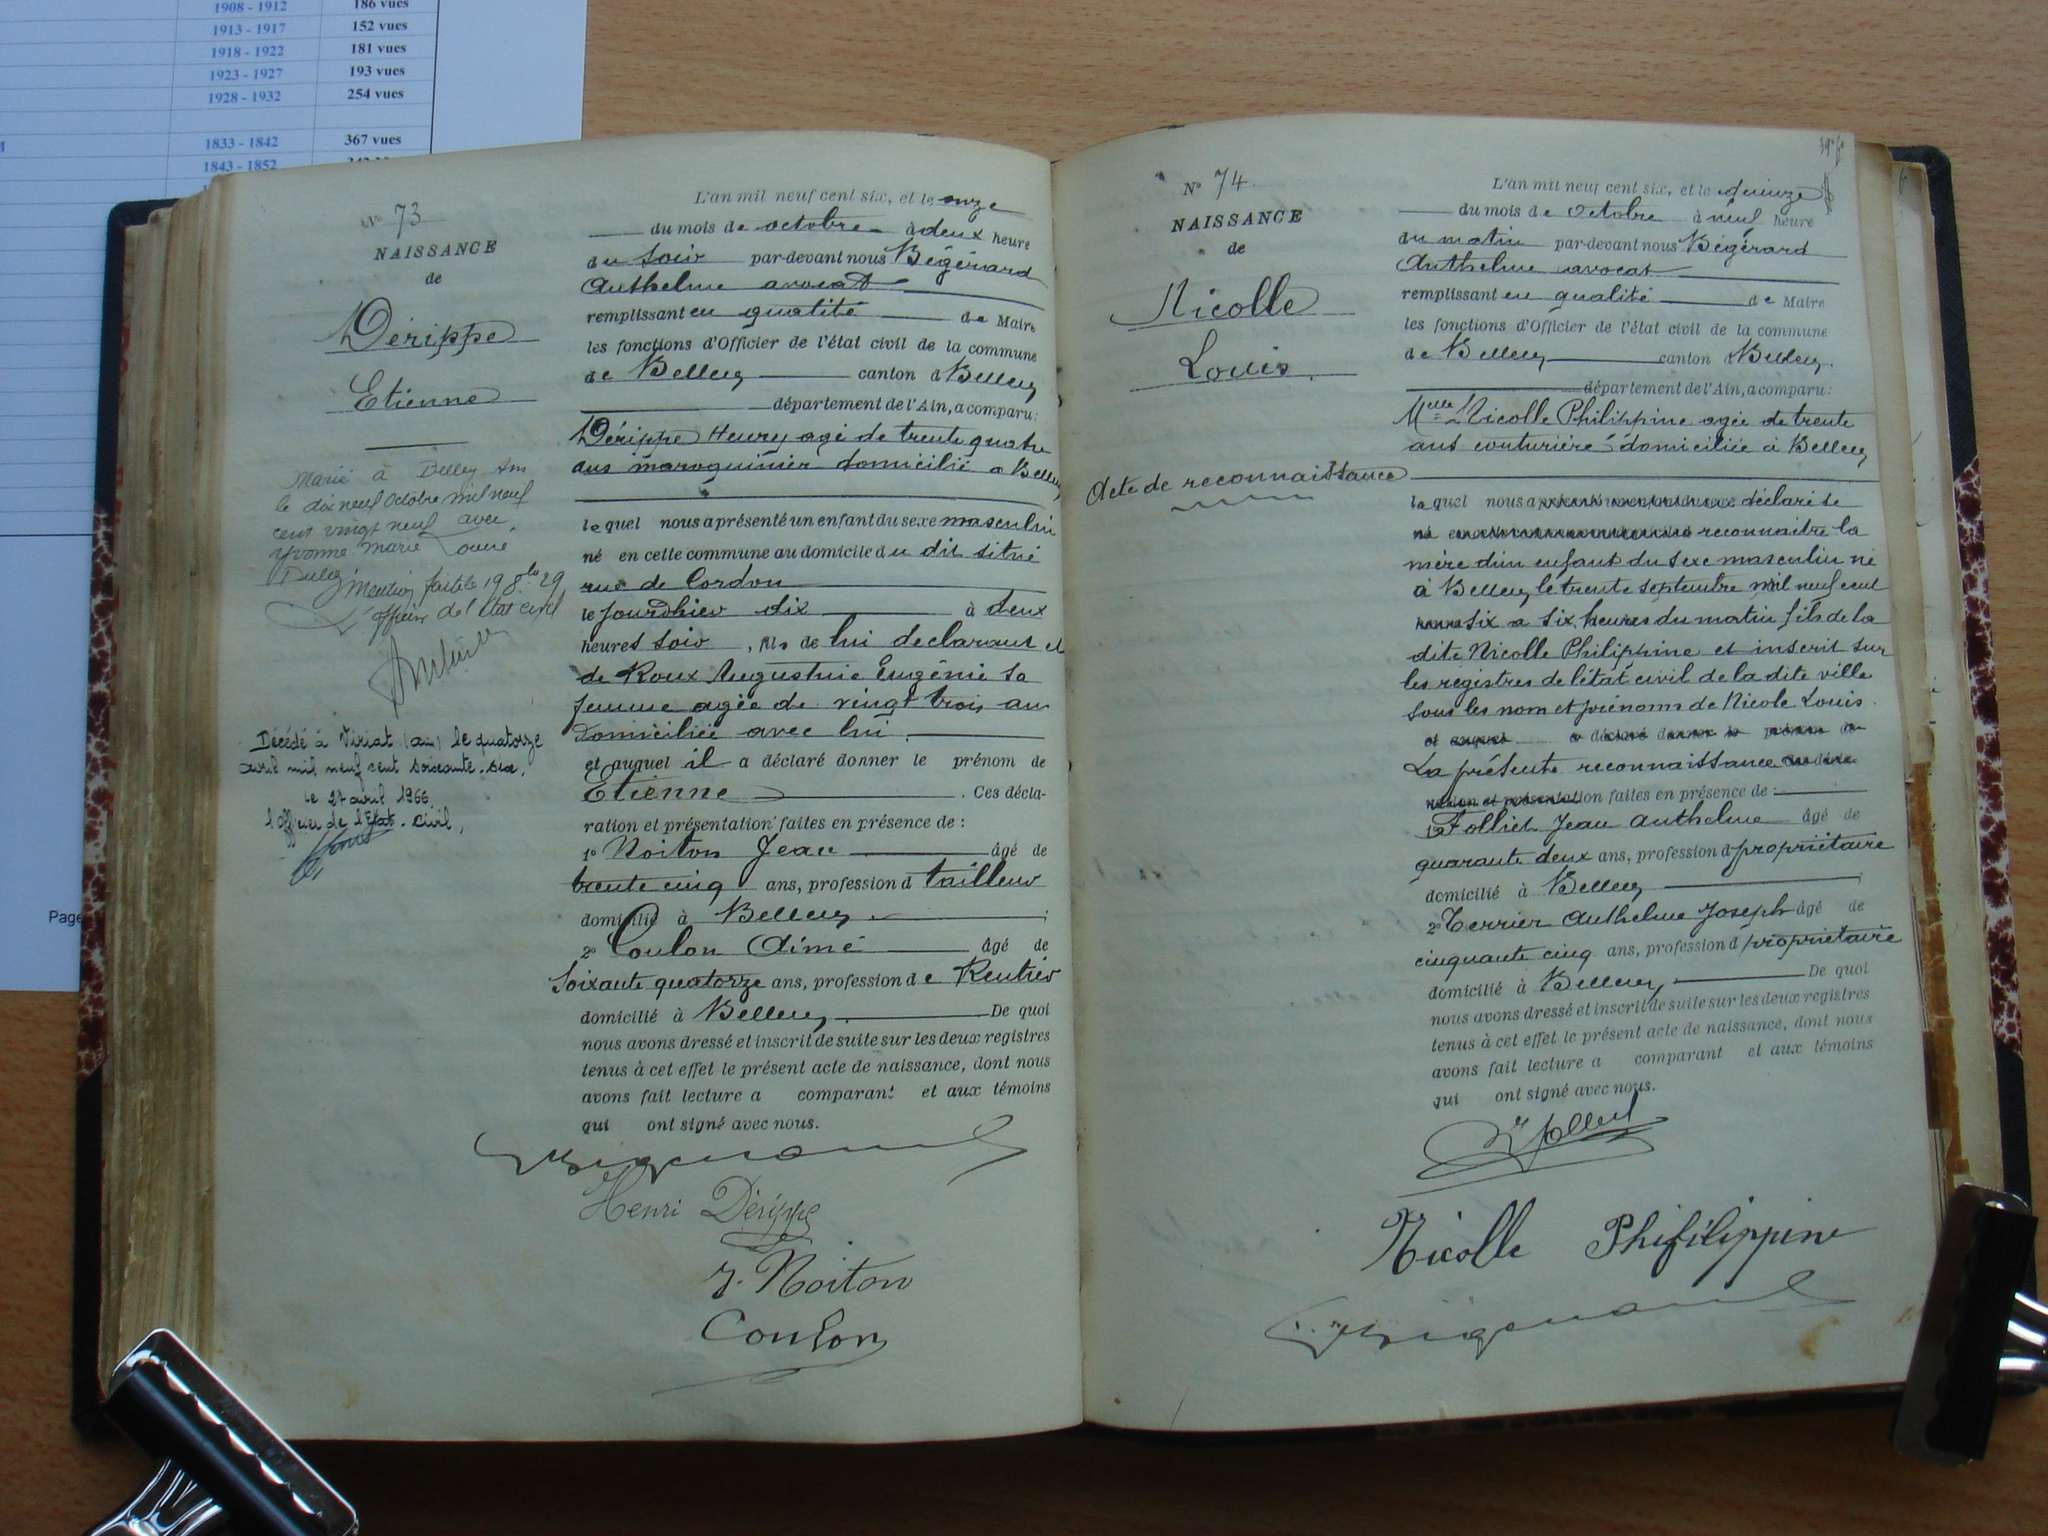 1908 - 1912 186 vues
1913 - 1917 152 vues
1918 - 1922 181 vues
1923 - 1927 193 vues
1928 - 1932 254 vues
1833 - 1842 367 vues
1843 - 1852
Page
N° 73
NAISSANCE
de
Dérippe
Etienne
Marié à Belley Ain
le dix neuf Octobre mil neuf
cent vingt neuf avec
Yvonne Marie
Mention faite le 19 8bre 29
L'officier de l'Etat civil
Décédé à Viriat (ain) le quatorze
avril mil neuf cent soixante-six,
le 27 avril 1966
l'officier de l'Etat-Civil,
L'an mil neuf cent six, et le onze
du mois de octobre à deux heure
du soir par-devant nous Bégérard
Anthelme avocat
remplissant en qualité de Maire
les fonctions d'Officier de l'état civil de la commune
de Belley canton d Belley
département de l'Ain, a comparu:
Dérippe Henry agé de trente quatre
ans maroquinier domicilié a Belley
lequel nous a présenté un enfant du sexe masculin
né en cette commune au domicile du dit situé
rue de Cordon
le jourdhier dix à deux
heures soir, fils de lui declarant et
de Roux Augustine Eugénie sa
femme agée de vingt trois ans
domiciliée avec lui.
et auquel il a déclaré donner le prénom de
Etienne . Ces décla-
ration et présentation faites en présence de :
1° Noiton Jean âgé de
trente cinq ans, profession d tailleur
domicilié à Belley ;
2° Coulon Aimé âgé de
Soixante quatorze ans, profession d e Rentier
domicilié à Belley De quoi
nous avons dressé et inscrit de suite sur les deux registres
tenus à cet effet le présent acte de naissance, dont nous
avons fait lecture a comparant et aux témoins
qui ont signé avec nous.
Henri Dérippe
J. Noiton
Coulon
N° 74
NAISSANCE
de
Nicolle
Louis.
Acte de reconnaissance
L'an mil neuf cent six, et le quinze
du mois de octobre à neuf heure
du matin par-devant nous Bégérard
Anthelme avocat
remplissant en qualité de Maire
les fonctions d'Officier de l'état civil de la commune
de Belley canton d Belley.
département de l'Ain, a comparu:
Melle Nicolle Philippine agée de trente
ans couturière domiciliée à Belley
laquel nous a déclaré se
reconnaitre la
mère d'un enfant du sexe masculin né
à Belley le trente septembre mil neuf cent
six a six heures du matin fils de la
dite Nicolle Philiphine et inscrit sur
les registres de l'état civil de la dite ville
sous les nom et prénoms de Nicole Louis.
et auquel a déclaré donner le prénom de
La présente reconnaissance
faites en présence de :
1° Folliet Jean Anthelme âgé de
quarante deux ans, profession d propriétaire
domicilié à Belley ;
2° Terrier Anthelme Joseph âgé de
cinquante cinq ans, profession d propriétaire
domicilié à Belley De quoi
nous avons dressé et inscrit de suite sur les deux registres
tenus à cet effet le présent acte de naissance, dont nous
avons fait lecture a comparant et aux témoins
qui ont signé avec nous.
Nicolle Phifilippine